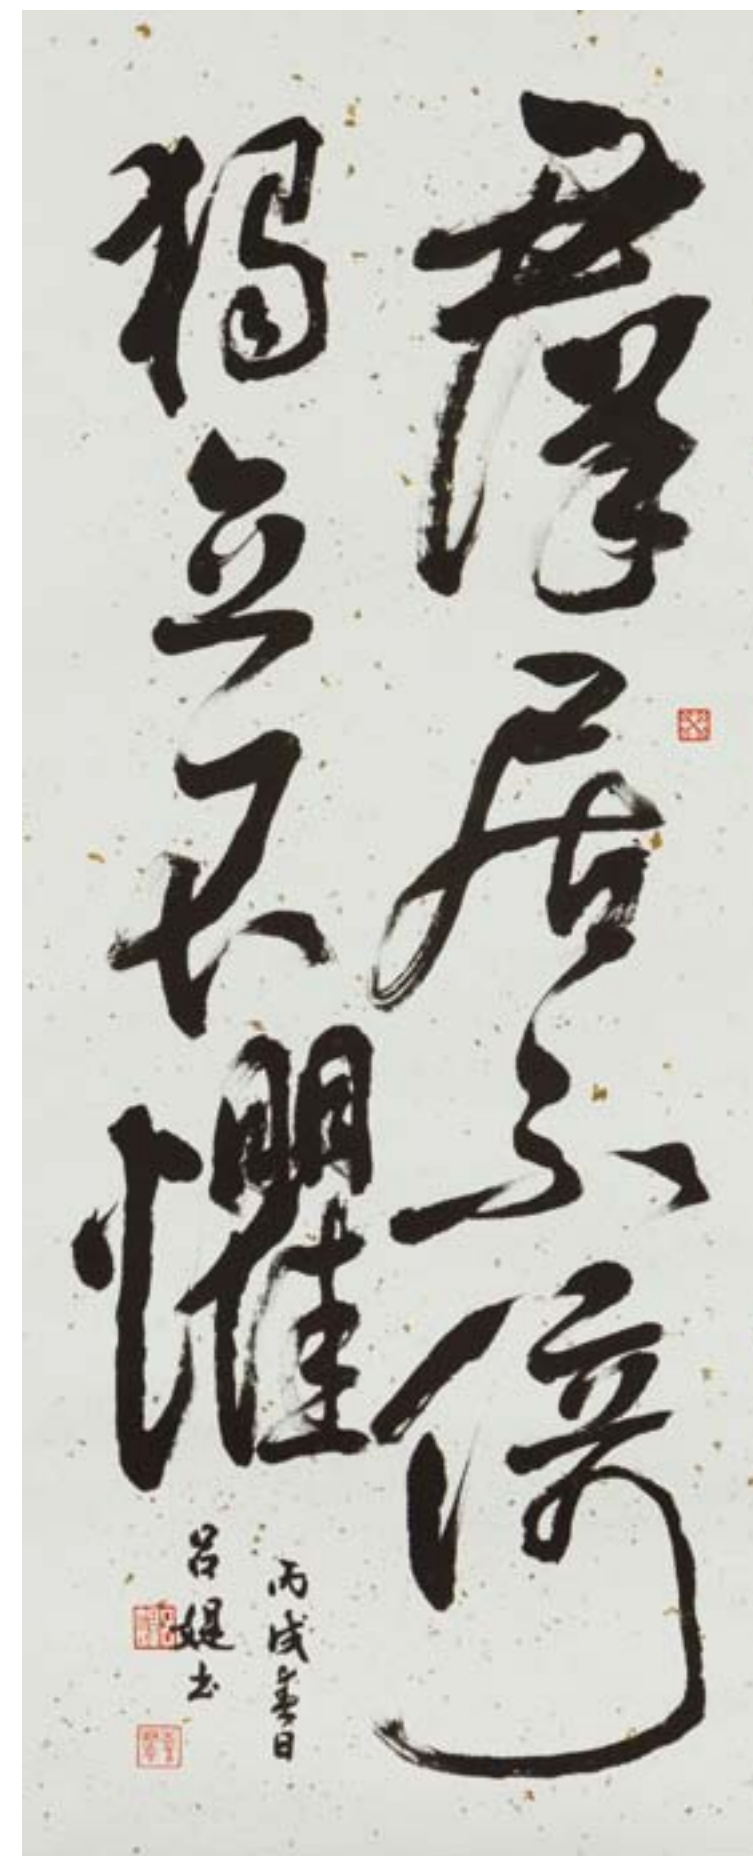 羣居不倚
獨立不懼
丙戌春日
呂媞書